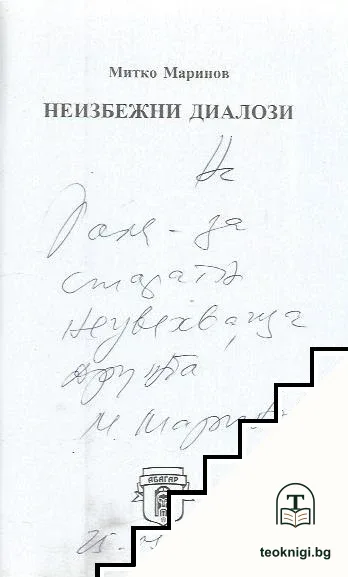 Митко Маринов
НЕИЗБЕЖНИ ДИАЛОЗИ
На
за
старата
неувяхваща
дружба
М. Марин
АБАГАР
teoknigi.bg